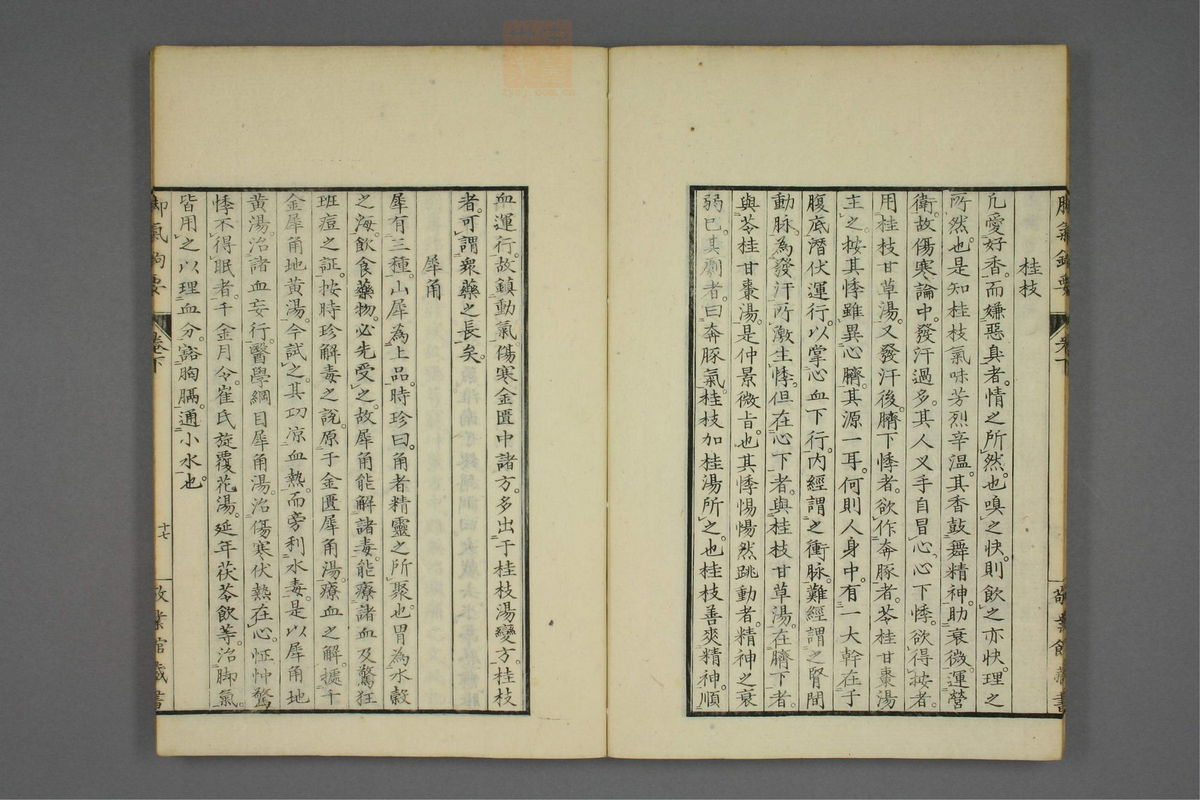 桂枝
凢愛好香。而嫌惡臭者。情之所然。也嗅之快。則飲之亦快。理之
所然。也。是知桂枝氣味芳烈辛溫。其香鼓舞精神。肋衰微。運營
衞。故傷寒論中。發汗過多。其人叉手自冒心。心下悸。欲得按者。
用桂枝甘草湯。又發汗後。臍下悸者。欲作奔豚者。苓桂甘棗湯
主之。按其悸雖異心臍。其源一耳。何則人身中。有一大幹在于
腹底潛伏運行。以掌心血下行。內經謂之衝脉。難經謂之腎間
動脉。為發汗所激生悸。但在心下者。與桂枝甘草湯。在臍下者。
與苓桂甘棗湯。是仲景微旨。也其悸惕惕然跳動者。精神之衰
弱已。其劇者。曰奔豚氣。桂枝加桂湯所之。也桂枝善爽精神。順
血運行。故鎮動氣。傷寒金匱中諸方。多出于桂枝湯變方。桂枝
者。可謂衆藥之長矣。
犀角
犀有三種。山犀為上品。時珍曰。角者精靈之所聚。也胃為水穀
之海。飲食藥物。必先受之。故犀角能解諸毒。能療諸血。及驚狂
班痘之証。按時珍解毒之說。原于金匱犀角湯。療血之解。據千
金犀角地黃湯。今試之。其功凉血熱。而旁利水毒。是以犀角地
黃湯。治諸血妄行。醫學綱目犀角湯。治傷寒伏熱在心。怔忡驚
悸不得眠者。千金月令。崔氏旋覆花湯。延年茯苓飲等。治脚氣。
皆用之。以理血分。豁胸膈。通小水也。
卷下
十七
敬業館藏書